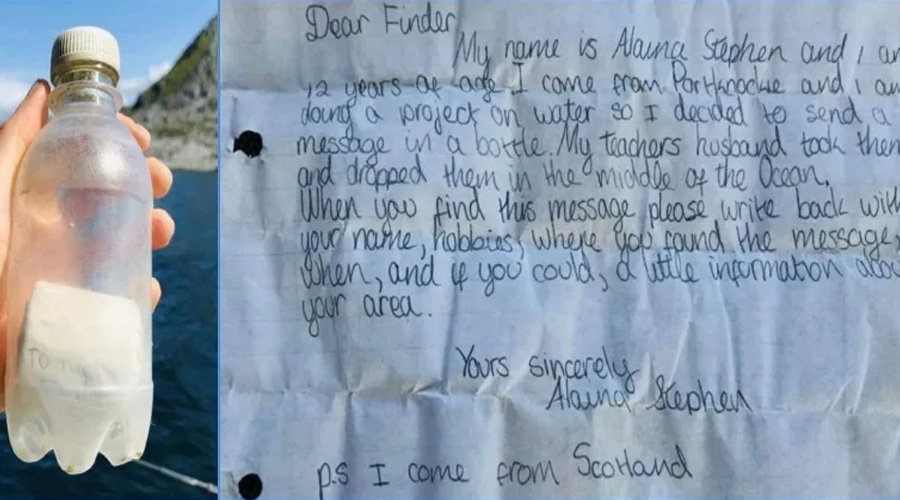 TO
Dear Finder
My name is Alaina Stephen and I am
12 years of age I come from Portknockie and I am
doing a project on water so I decided to send a
message in a bottle. My teachers husband took them
and dropped them in the middle of the Ocean.
When you find this message please write back with
your name, hobbies, where you found the message,
when, and if you could, a little information abou
your area.
Yours sincerely
Alaina Stephen
p.s I come from Scotland